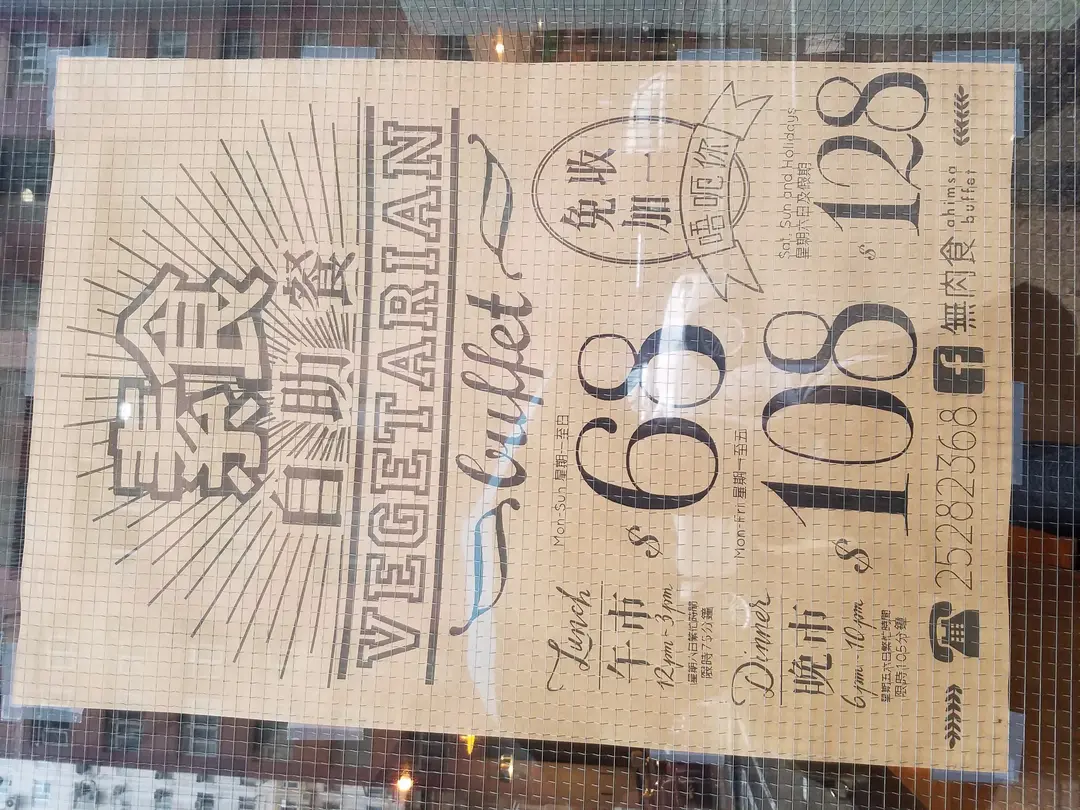 素食
自助餐
VEGETARIAN
buffet
Lunch
午市
12pm-3pm
星期六日繁忙時間
限時75分鐘
Mon-Sun 星期一至日
$68
免收
加一
唔呃你
Dinner
晚市
6pm-10pm
星期五六日繁忙時間
限時105分鐘
Mon-Fri 星期一至五
$108
Sat, Sun and Holidays
星期六日及假期
$128
25282368
f
無肉食
ahimsa
buffet